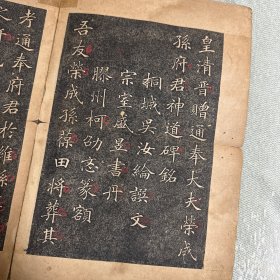 皇清晋贈通奉大夫榮成
孫府君神道碑銘
桐城吳汝綸譔文
宗室盛昱書丹
膠州柯劭忞篆額
吾友榮成孫葆田將葬其
考通奉府君於濰縣